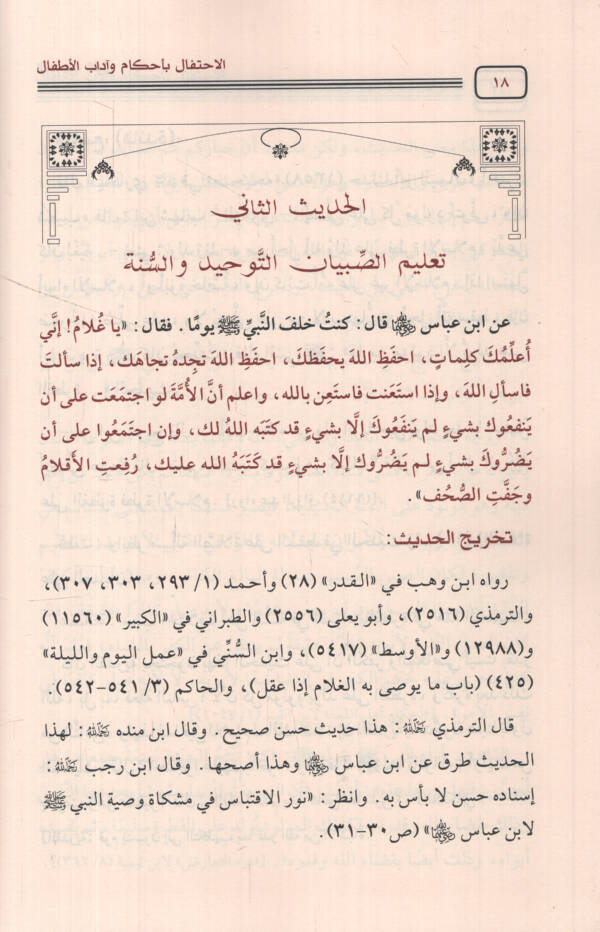 الاحتفال بأحكام وآداب الأطفال
١٨
الحديث الثاني
تعليم الصِّبيان التَّوحيد والسُّنة
عن ابن عباس رضي الله عنهما قال: كنتُ خلفَ النبيِّ ﷺ يومًا. فقال: «يا غُلامُ! إنَّي
أُعلِّمُكَ كلِماتٍ، احفَظِ اللهَ يحفَظكَ، احفَظِ اللهَ تجِدهُ تجاهَك، إذا سألتَ
فاسألِ اللهَ، وإذا استَعَنت فاستَعِن بالله، واعلم أنَّ الأُمَّةَ لو اجتمَعَت على أن
يَنفعُوك بشيءٍ لم يَنفَعُوكَ إلَّا بشيءٍ قد كتبَه اللهُ لك، وإن اجتمَعُوا على أن
يَضُرُّوكَ بشيءٍ لم يَضُرُّوك إلَّا بشيءٍ قد كَتَبَهُ الله عليك، رُفِعتِ الأقلامُ
وجَفَّتِ الصُّحُف».
تخريج الحديث:
رواه ابن وهب في «القدر» (٢٨) وأحمد (١/ ٢٩٣، ٣٠٣، ٣٠٧)،
والترمذي (٢٥١٦)، وأبو يعلى (٢٥٥٦) والطبراني في «الكبير» (١١٥٦٠)
و(١٢٩٨٨) و«الأوسط» (٥٤١٧)، وابن السُّنِّي في «عمل اليوم والليلة»
(٤٢٥) (باب ما يوصى به الغلام إذا عقل)، والحاكم (٣/ ٥٤١-٥٤٢).
قال الترمذي رحمه الله: هذا حديث حسن صحيح. وقال ابن منده رحمه الله: لهذا
الحديث طرق عن ابن عباس رضي الله عنهما وهذا أصحها. وقال ابن رجب رحمه الله:
إسناده حسن لا بأس به. وانظر: «نور الاقتباس في مشكاة وصية النبي ﷺ
لابن عباس رضي الله عنهما» (ص٣٠-٣١).